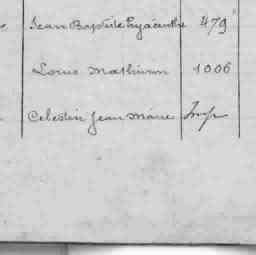 Jean Baptiste Hyacinthe 479
Louis Mathurin 1006
Celestin Jean Marie Imp